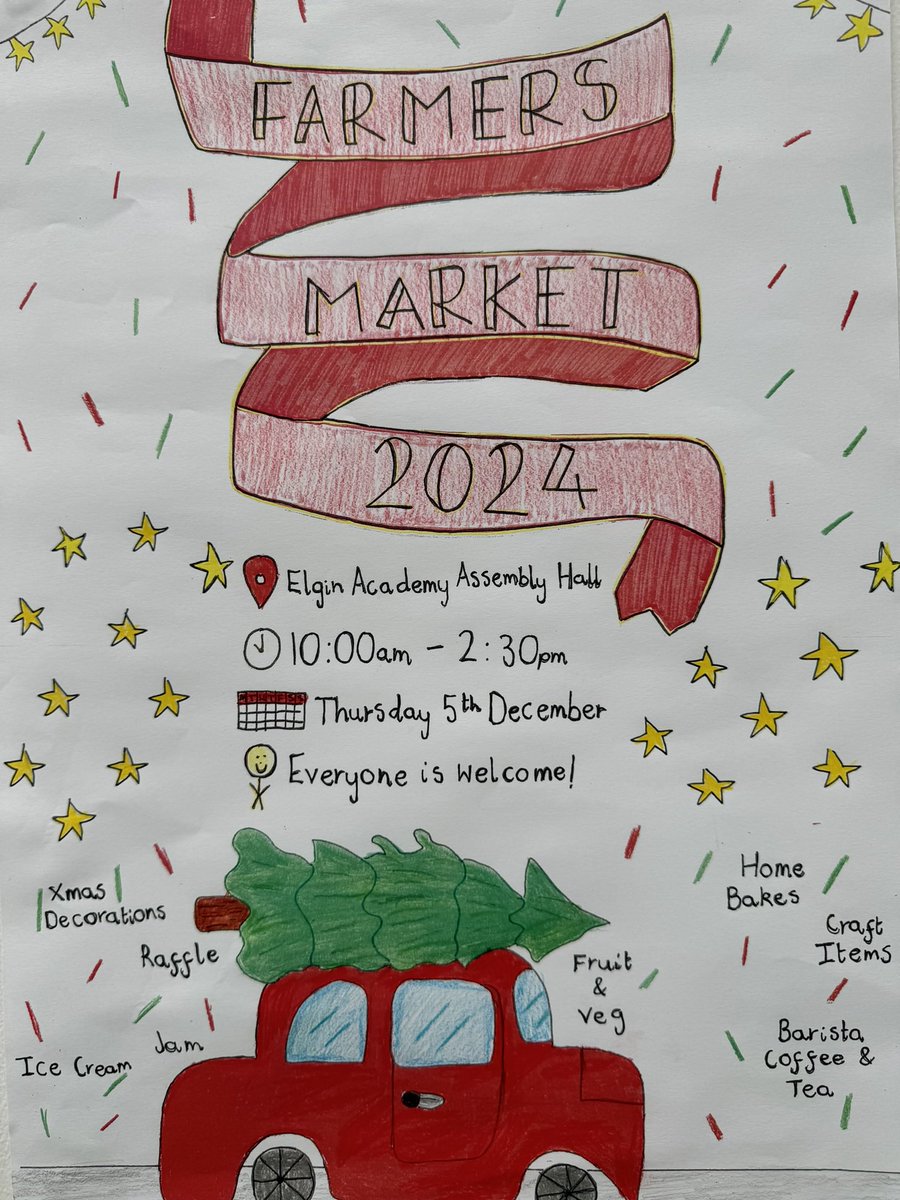 FARMERS
MARKET
2024
Elgin Academy Assembly Hall
10:00am - 2:30pm
Thursday 5th December
Everyone is welcome!
Xmas
Decorations
Raffle
Jam
Ice Cream
Fruit
&
veg
Home
Bakes
Craft
Items
Barista
Coffee &
Tea